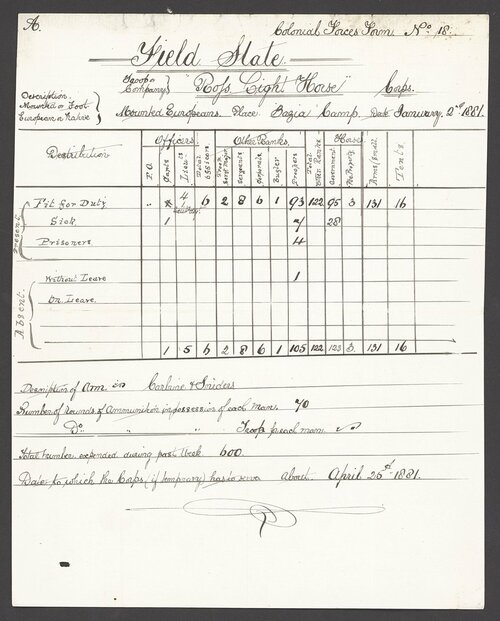 A.
Colonial Forces Form No 18.
Field State.
Troop or Company } "Ross Light Horse" Corps.
Description. Mounted or Foot European or Native } Mounted Europeans. Place Bazia Camp. Date January 2nd 1881.
Officers Other Ranks Horses
Distribution F.O. Captns Lieuts Total Officers Troop Sergt Major Sergeants Corporals Bugler Troopers Total Other Ranks Government Pte Property Arms (Small) Tents
Present.
Fit for Duty " 4 6 2 8 6 1 93 122 95 3 131 16
Sick 1 7 28
Prisoners 4
Absent.
Without Leave 1
On Leave
1 5 6 2 8 6 1 105 122 123 3 131 16
Description of Arm Carbine & Sniders
Number of Rounds of Ammunition in possession of each man. 70
Do " " Troop for each man
Total number expended during past Week 600.
Date to which the Corps (if temporary) has to serve About April 25st 1881.